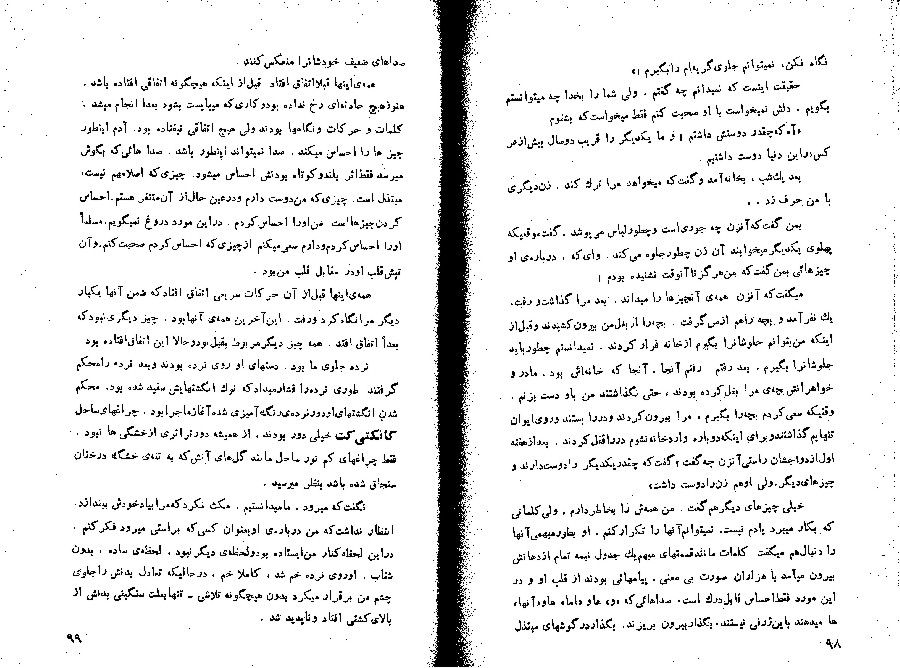 نگاه فکن، نمیتوانم جلوی گریه‌ام را بگیرم !»
حقیقت اینست که نمیدانم چه گفتم . ولی شما را بخدا چه میتوانستم
بگویم . دلش نمیخواست با او صحبت کنم فقط میخواست که بشنوم
«آه که چقدر دوستش داشتم ! و ما یکدیگر را قریب دو سال بیش از هر
کس در این دنیا دوست داشتیم .
بعد یک شب ، بخانه آمد و گفت که میخواهد مرا ترک کند . زن دیگری
با من حرف زد . .
بمن گفت که آنزن چه جوری است و چطور لباس می پوشد . گفت موقعیکه
پهلوی یکدیگر میخوابند آن زن چطور جلوه می کند . وای که ، درباره‌ی او
چیزهائی بمن گفت که من هرگز تا آنوقت نشنیده بودم !
میگفت که آنزن همه‌ی آنچیزها را میداند . بعد مرا گذاشت و رفت.
یک نفر آمد و بچه راهم از من گرفت . بچه را از بغل من بیرون کشیدند و قبل از
اینکه من بتوانم جلوشان را بگیرم از خانه فرار کردند . نمیدانستم چطور باید
جلوشان را بگیرم . بعد رفتم رفتم آنجا . آنجا که خانه‌اش بود . مادر و
خواهرانش بچه‌ی مرا بغل کرده بودند ، حتی نگذاشتند من باو دست بزنم .
وقتیکه سعی کردم بچه را بگیرم ، مرا بیرون کردند و در را بستند و روی ایوان
تنهایم گذاشتند و برای اینکه دوباره وارد خانه نشوم در را قفل کردند . بعد از هفته
اول ازدواجشان راستی آنزن چه گفت ؟ گفت که چقدر یکدیگر را دوست دارند و
چیزهای دیگر . ولی او هم زن را دوست داشت»
خیلی چیزهای دیگر هم گفت . من همه‌ش را بخاطر دارم . ولی کلماتی
که بکار میبرد یادم نیست. نمیتوانم آنها را تکرار کنم . او بطور مبهمی آنها
را دنبال هم میگفت کلمات مانند قسمتهای مبهم یک جدول نیمه تمام از دهانش
بیرون میآمد با هزاران صورت بی معنی . پیامهائی بودند از قلب او و در
این مورد فقط احساس قابل درک است . صداهائی که
ها میدهند باین ژرفی نیستند. بگذار بیرون بریزند. بگذار در گوشهای مبتذل
۹۸
صداهای ضعیف خودشانرا منعکس کنند .
همه‌ی اینها قبلا اتفاق افتاد قبل از اینکه هیچگونه اتفاقی افتاده باشد .
هنوز هیچ حادثه‌ای رخ نداده بود و کاری که میبایست بشود بعداً انجام میشد .
کلمات و حرکات و نگاهها بودند ولی هیچ اتفاقی نیفتاده بود. آدم اینطور
چیز ها را احساس میکند . صدا نمیتواند اینطور باشد . صدا هائی که بگوش
میرسد فقط اثر بلند و کوتاه بودنش احساس میشود. چیزی که اصلا مهم نیست.
مبتذل است. چیزی که من دوست دارم و در عین حال از آن متنفر هستم. احساس
کردن چیزهاست من او را احساس کردم . در این مورد دروغ نمیگویم. مسلماً
او را احساس کردم و دارم سعی میکنم از چیزی که احساس کردم صحبت کنم. و آن
تپش قلب او در مقابل قلب من بود .
همه‌ی اینها قبل از آن حرکات سریعی اتفاق افتاد که ضمن آنها یکبار
دیگر مرا نگاه کرد و رفت . این آخرین همه‌ی آنها بود . چیز دیگری نبود که
بعداً اتفاق افتد . همه چیز دیگر مربوط بقبل بود و حالا این اتفاق افتاده بود
نرده جلوی ما بود . دستهای او روی نرده بودند و بعد نرده را محکم
گرفتند طوری نرده را فشار میداد که نوک انگشتهایش سفید شده بود. محکم
شدن انگشتهای او دور نرده‌ی رنگ آمیزی شده آغاز ماجرا بود . چراغهای ساحل
کانکتی کت خیلی دور بودند ، از همیشه دورتر اثری از خشگی ها نبود .
فقط چراغهای کم نور ساحل مانند گل‌های آتش که به تنه‌ی خشگ درختان
سنجاق شده باشد بنظر میرسید .
نگفت که میرود . ما میدانستیم . مکث نکرد که مرا بیاد خودش بیندازد.
انتظار نداشت که من درباره‌ی او بعنوان کسی که براستی میرود فکر کنم .
در این لحظه کنار من ایستاده بود و لحظه‌ی دیگر نبود . لحظه‌ی ساده . بدون
شتاب . او روی نرده خم شد ، کاملا خم ، در حالیکه تعادل بدنش را جلوی
چشم من برقرار میکرد بدون هیچگونه تلاشی ــ تنها بعلت سنگینی بدنش از
بالای کشتی افتاد و ناپدید شد .
۹۹